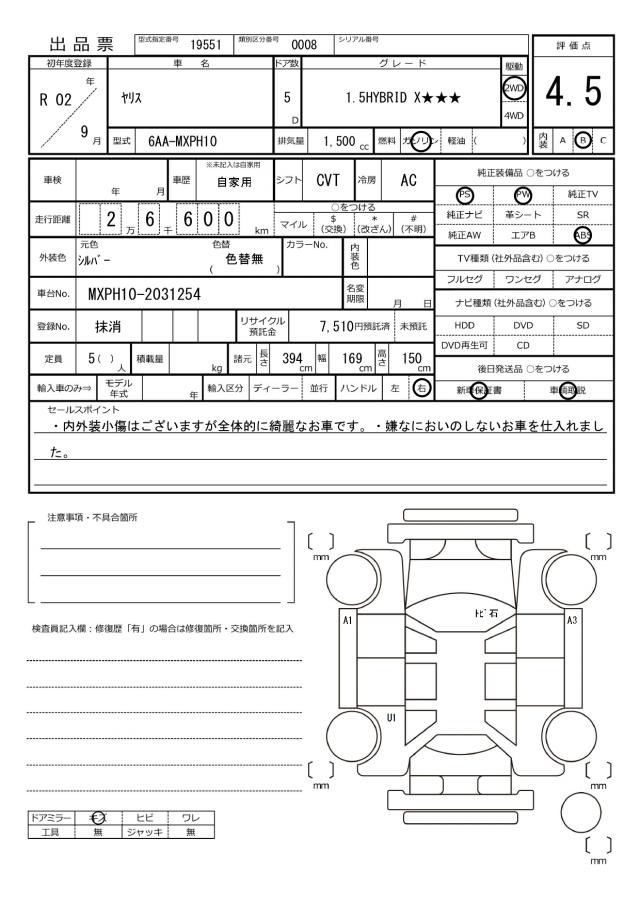 出品票 型式指定番号 19551 類別区分番号 0008 シリアル番号
評価点
4.5
内装 A B C
初年度登録 車名 ドア数 グレード 駆動
R 02 年 9 月 ﾔﾘｽ 5 D 1.5HYBRID X★★★ 2WD
4WD
型式 6AA-MXPH10 排気量 1,500 cc 燃料 ガソリン 軽油 ( )
車検 年 月 車歴 ※未記入は自家用 自家用 シフト CVT 冷房 AC
走行距離 2 万 6 千 6 0 0 km
○をつける
マイル $(交換) *(改ざん) #(不明)
外装色 元色 ｼﾙﾊﾞｰ 色替 ( 色替無 ) カラーNo. 内装色
車台No. MXPH10-2031254 名変期限 月 日
登録No. 抹消 リサイクル預託金 7,510円預託済 未預託
定員 5 ( ) 人 積載量 kg 諸元 長さ 394 cm 幅 169 cm 高さ 150 cm
輸入車のみ⇒ モデル年式 年 輸入区分 ディーラー 並行 ハンドル 左 右
純正装備品 ○をつける
PS PW 純正TV
純正ナビ 革シート SR
純正AW エアB ABS
TV種類 (社外品含む) ○をつける
フルセグ ワンセグ アナログ
ナビ種類 (社外品含む) ○をつける
HDD DVD SD
DVD再生可 CD
後日発送品 ○をつける
新車保証書 車輌取説
セールスポイント
・内外装小傷はございますが全体的に綺麗なお車です。・嫌なにおいのしないお車を仕入れまし
た。
注意事項・不具合箇所
検査員記入欄：修復歴「有」の場合は修復箇所・交換箇所を記入
mm
mm
ﾄﾋﾞ石
A1
A3
U1
mm
mm
mm
ドアミラー キズ ヒビ ワレ
工具 無 ジャッキ 無